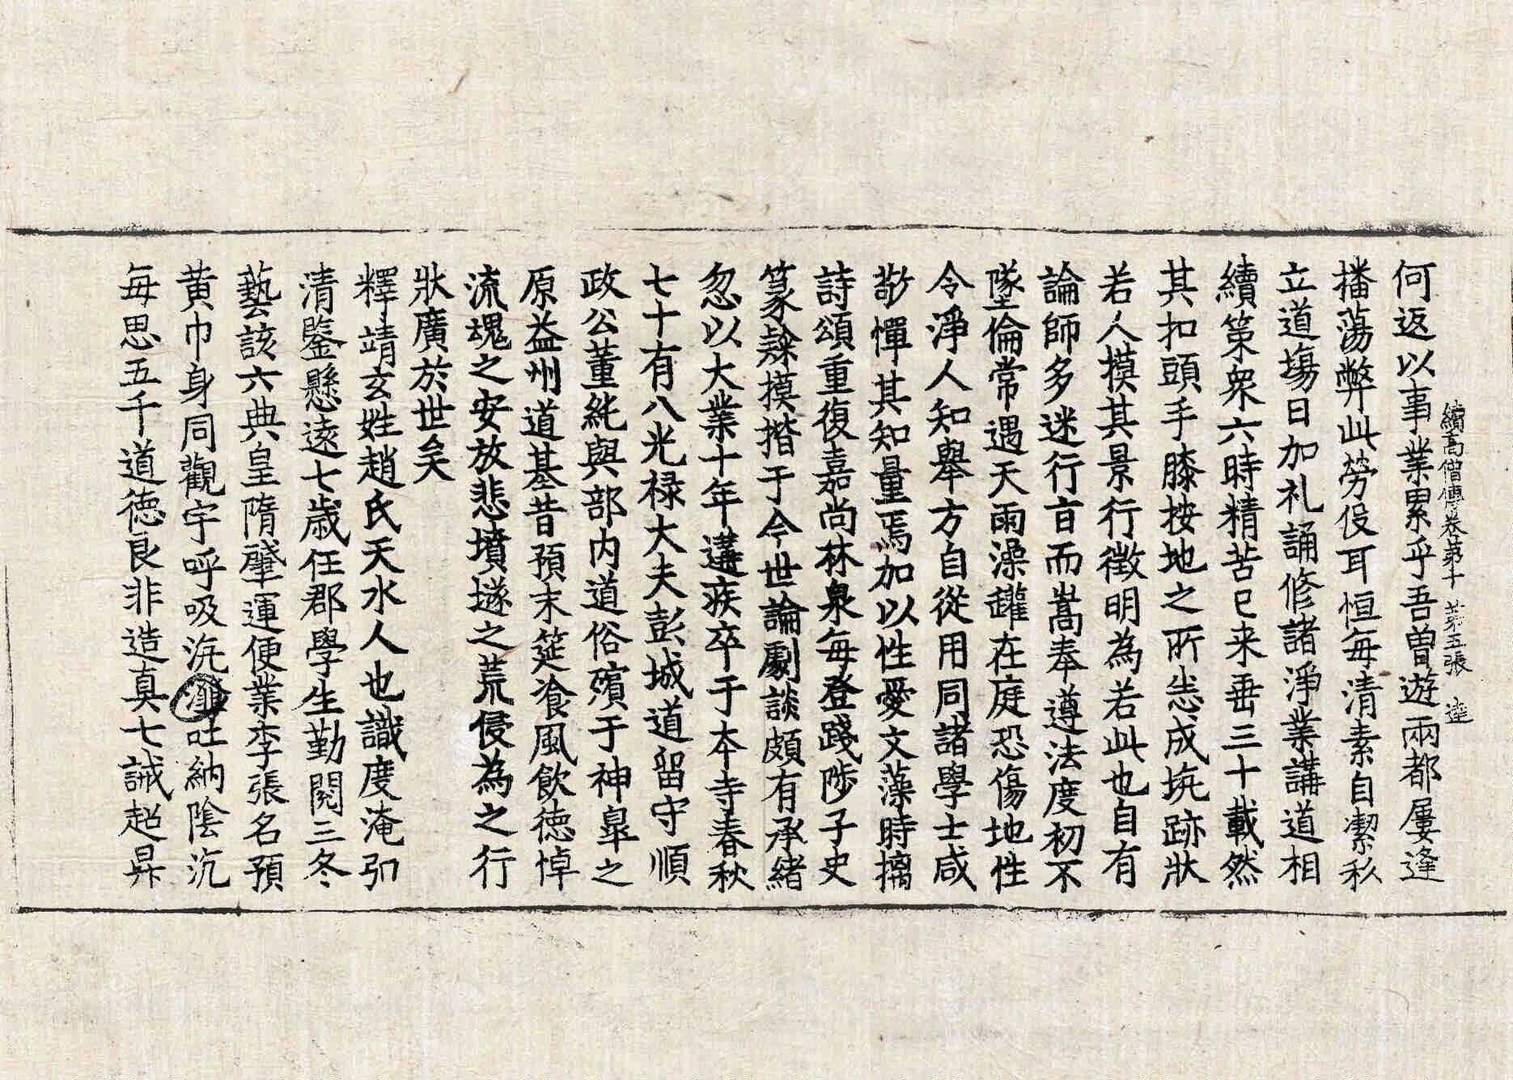 續高僧傳卷第十 第五張 逵
何返以事業累乎吾曽遊兩都屢逢
播蕩弊此勞伇耳恒每清素自潔私
立道場日加礼誦修諸淨業講道相
續策衆六時精苦已来垂三十載然
其扣頭手膝按地之所悉成坑跡狀
若人摸其景行徵明為若此也自有
論師多迷行旨而嵩奉遵法度初不
墜倫常遇天雨澡罐在庭恐傷地性
令淨人知舉方自從用同諸學士咸
敬憚其知量焉加以性愛文藻時摛
詩頌重復嘉尚林泉每登踐陟子史
篆隸摸揩于今世論劇談頗有承緒
忽以大業十年遘疾卒于夲寺春秋
七十有八光禄大夫彭城道留守順
政公董純與部內道俗殯于神臯之
原益州道基昔預末筵飡風飲德悼
流魂之安放悲墳墜之荒侵為之行
狀廣於世矣
釋靖玄姓趙氏天水人也識度淹弘
清鑒懸遠七歳任郡學生勤閱三冬
藝該六典皇隋肇運便業李張名預
黃巾身同觀宇呼吸沆瀣吐納陰沉
每思五千道德良非造真七誡超昇